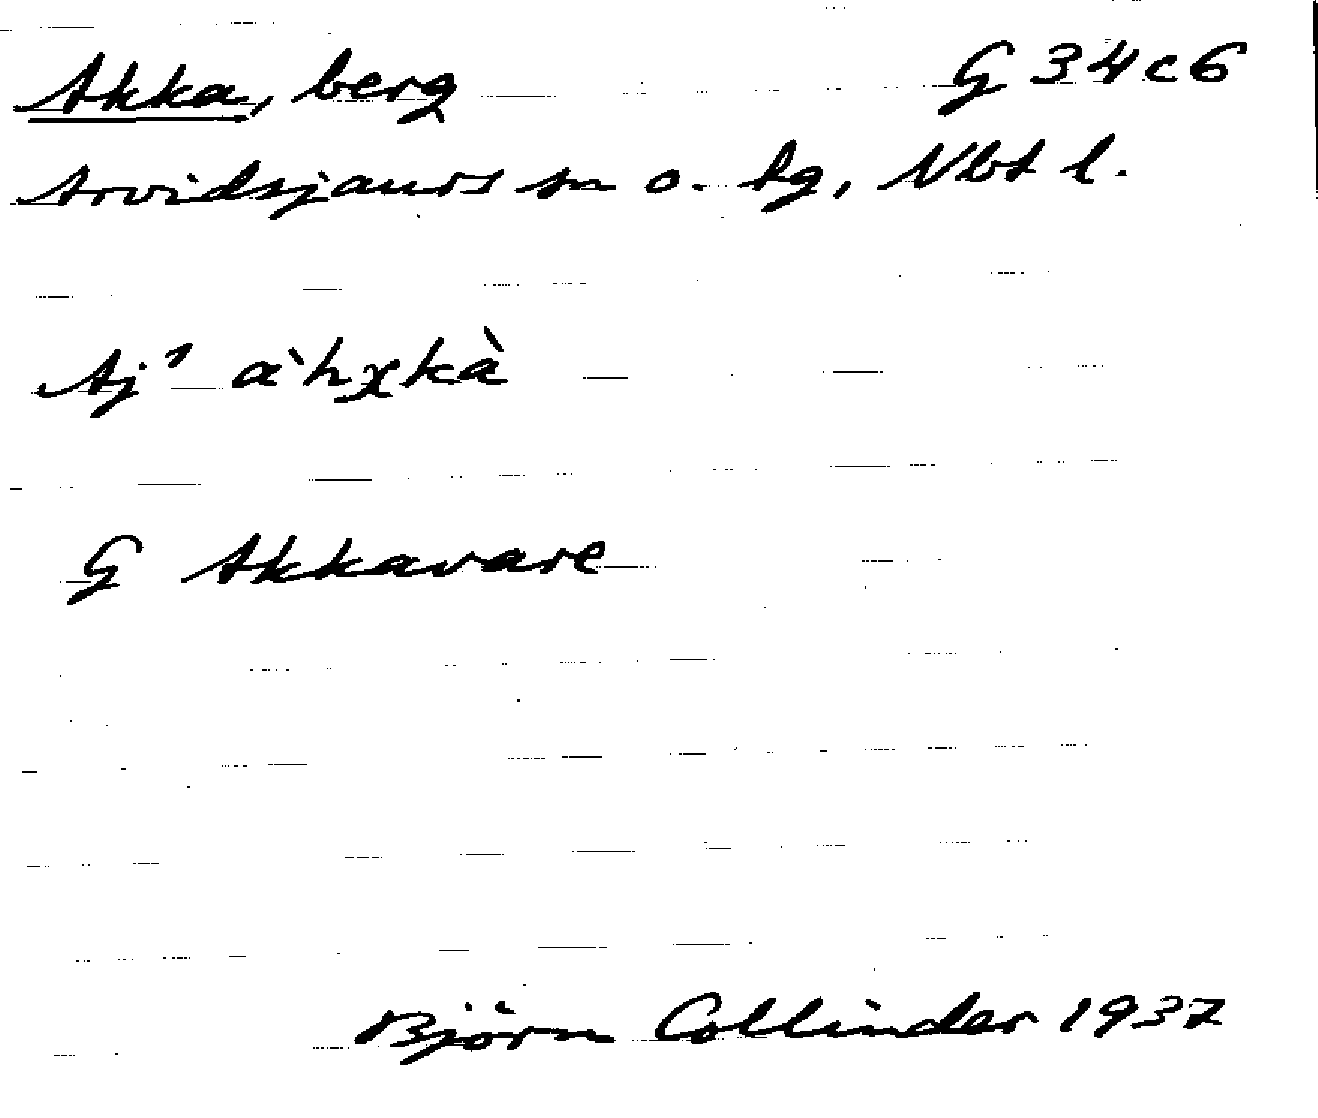 Akka, berg G 34c6
Arvidsjaurs sn o. tg, Nbt l.
Aj¹ ɑ̀hχkɑ̀
G Akkavare
Björn Collinder 1937